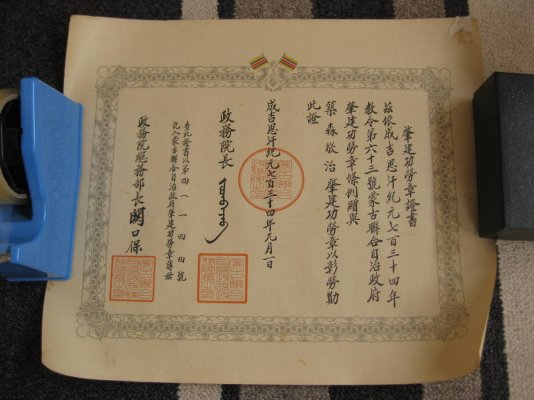 肇建功勞章證書
茲依成吉思汗紀元七百三十四年
敎令第六十三號蒙古聯合自治政府
肇建功勞章條例贈與
築森敬治肇建功勞章以彰勞勩
此證
成吉思汗紀元七百三十四年九月一日
政務院長
查此證書以第四一一四四號
記入蒙古聯合自治政府肇建功勞章簿冊
政務院總務部長關口保